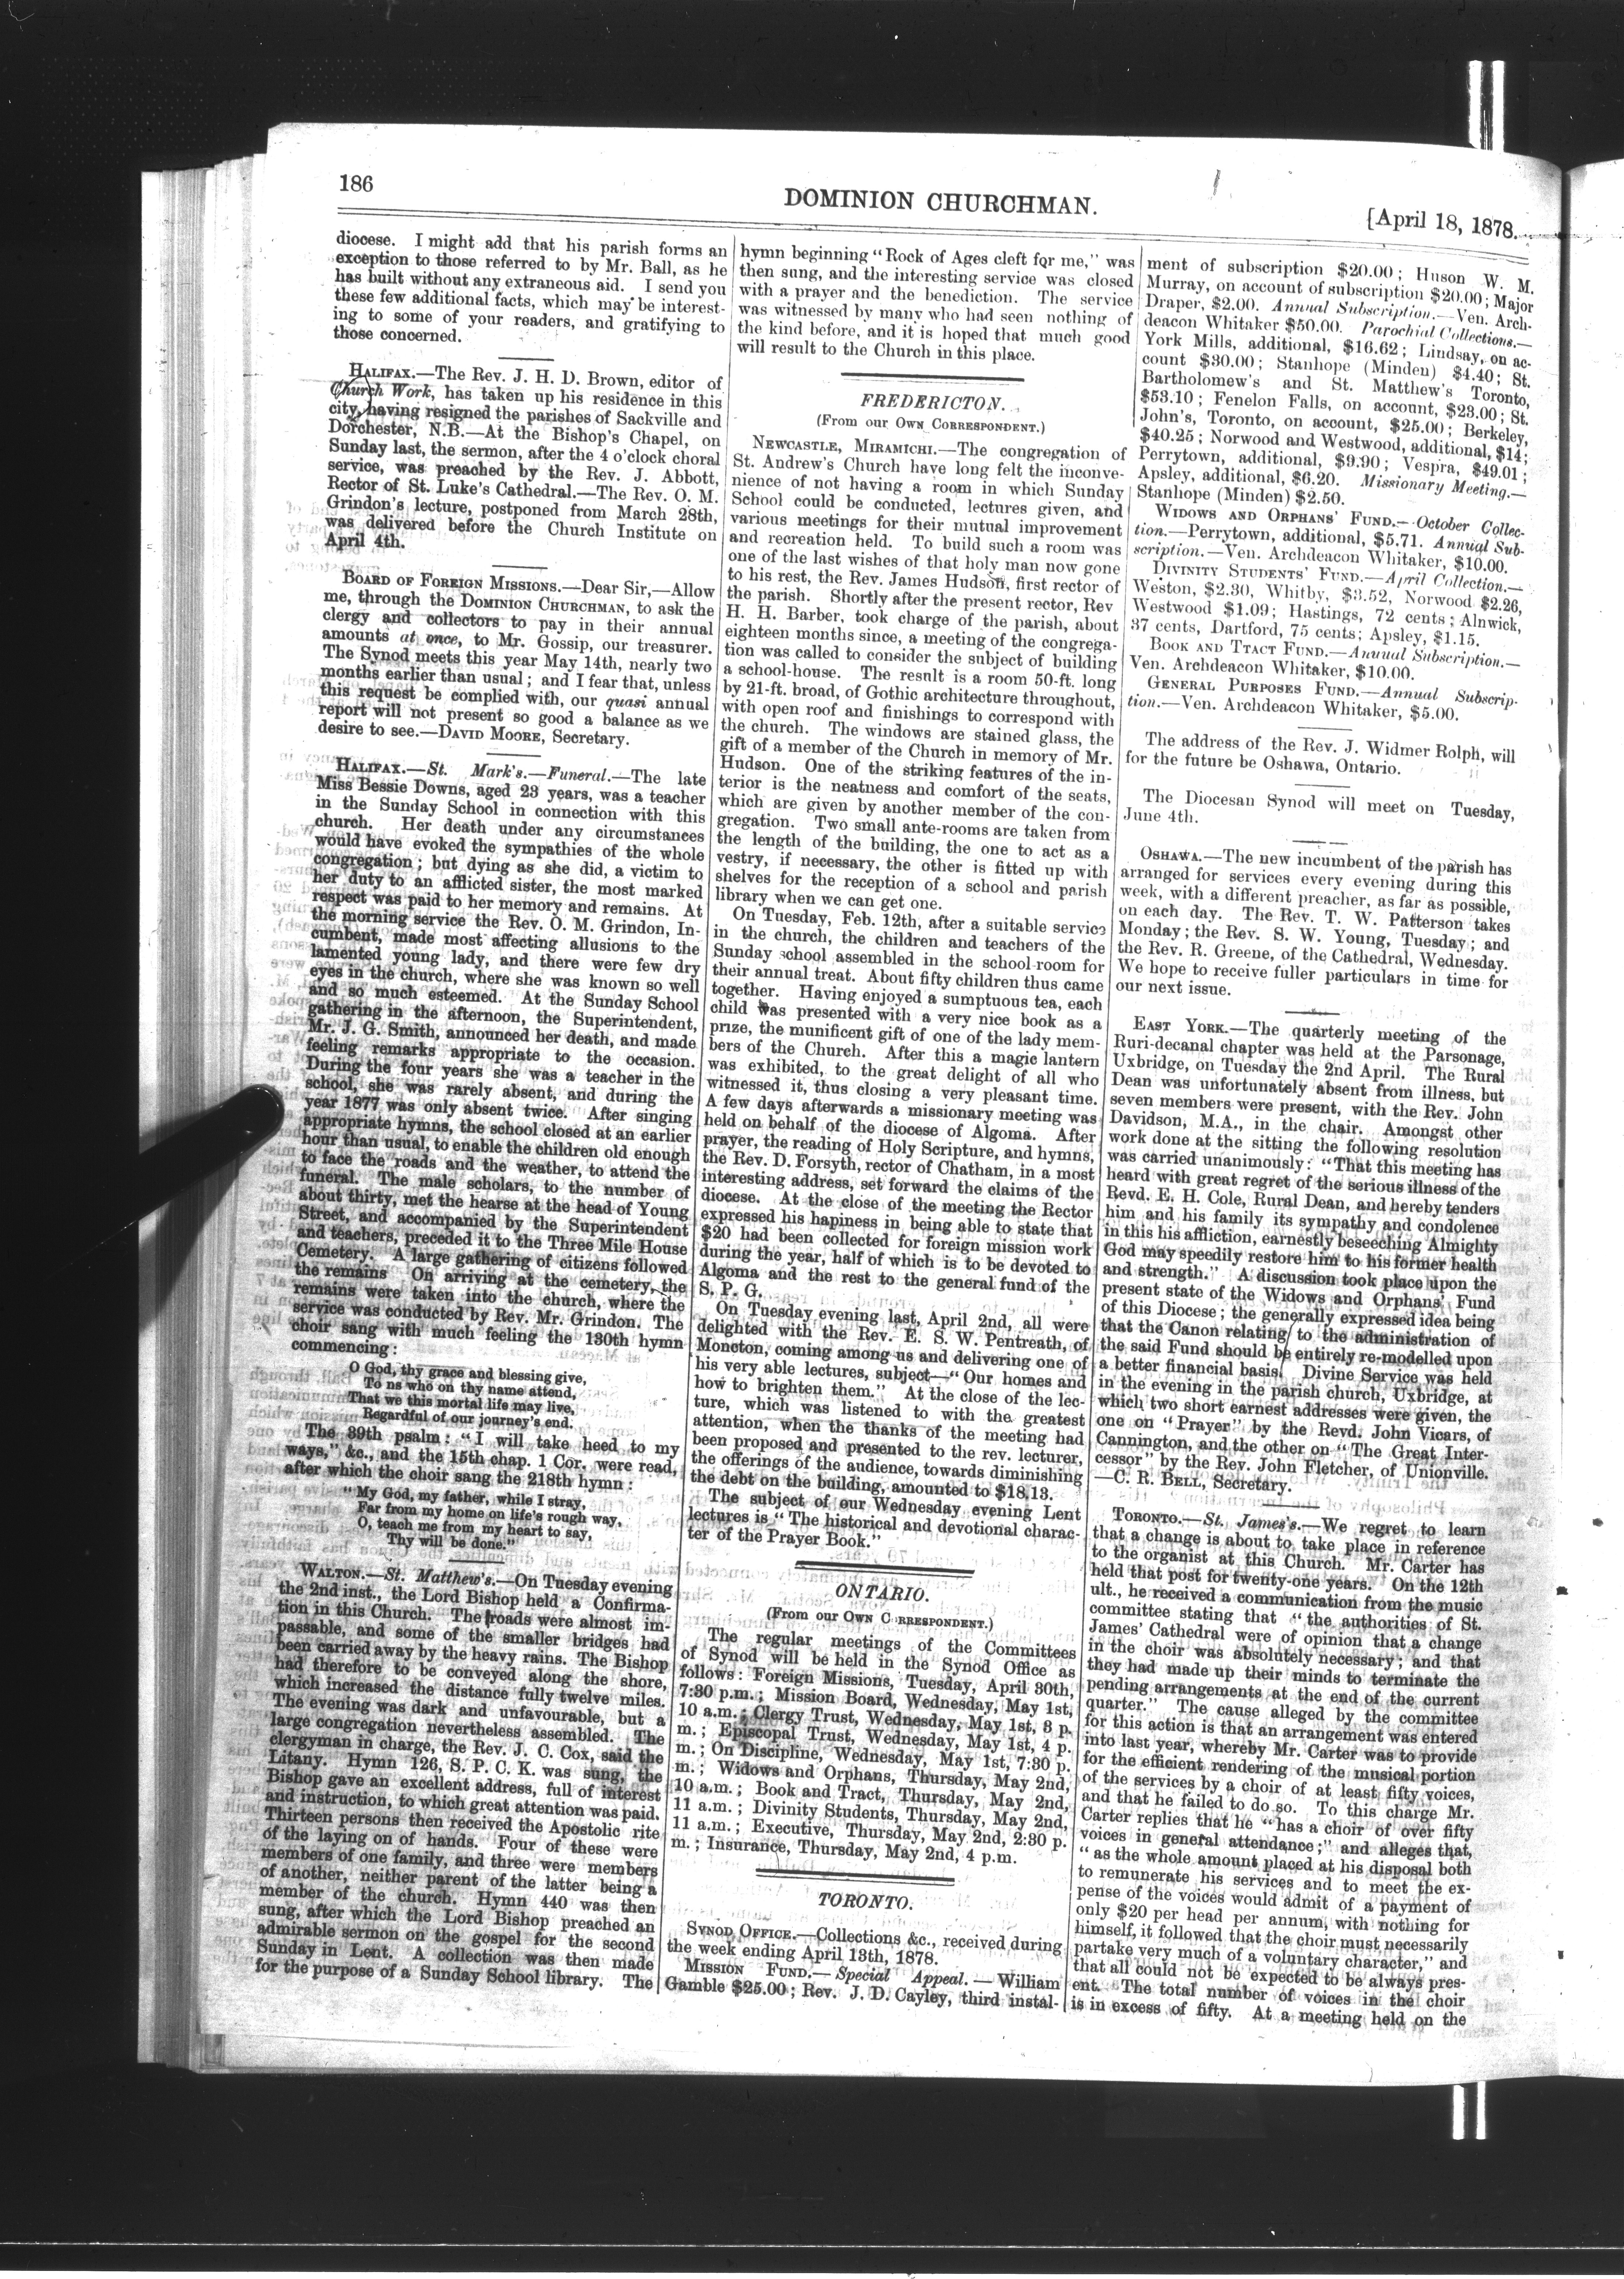 186
DOMINION CHURCHMAN.
[April 18, 1878.
diocese. I might add that his parish forms an
exception to those referred to by Mr. Ball, as he
has built without any extraneous aid. I send you
these few additional facts, which may be interest-
ing to some of your readers, and gratifying to
those concerned.
HALIFAX.—The Rev. J. H. D. Brown, editor of
Church Work, has taken up his residence in this
city, having resigned the parishes of Sackville and
Dorchester, N.B.—At the Bishop's Chapel, on
Sunday last, the sermon, after the 4 o'clock choral
service, was preached by the Rev. J. Abbott,
Rector of St. Luke's Cathedral.—The Rev. O. M.
Grindon's lecture, postponed from March 28th,
was delivered before the Church Institute on
April 4th.
BOARD OF FOREIGN MISSIONS.—Dear Sir,—Allow
me, through the DOMINION CHURCHMAN, to ask the
clergy and collectors to pay in their annual
amounts at once, to Mr. Gossip, our treasurer.
The Synod meets this year May 14th, nearly two
months earlier than usual; and I fear that, unless
this request be complied with, our quasi annual
report will not present so good a balance as we
desire to see.—DAVID MOORE, Secretary.
HALIFAX.—St. Mark's.—Funeral.—The late
Miss Bessie Downs, aged 23 years, was a teacher
in the Sunday School in connection with this
church. Her death under any circumstances
would have evoked the sympathies of the whole
congregation; but dying as she did, a victim to
her duty to an afflicted sister, the most marked
respect was paid to her memory and remains. At
the morning service the Rev. O. M. Grindon, In-
cumbent, made most affecting allusions to the
lamented young lady, and there were few dry
eyes in the church, where she was known so well
and so much esteemed. At the Sunday School
gathering in the afternoon, the Superintendent,
Mr. J. G. Smith, announced her death, and made
feeling remarks appropriate to the occasion.
During the four years she was a teacher in the
school, she was rarely absent, and during the
year 1877 was only absent twice. After singing
appropriate hymns, the school closed at an earlier
hour than usual, to enable the children old enough
to face the roads and the weather, to attend the
funeral. The male scholars, to the number of
about thirty, met the hearse at the head of Young
Street, and accompanied by the Superintendent
and teachers, preceded it to the Three Mile House
Cemetery. A large gathering of citizens followed
the remains On arriving at the cemetery, the
remains were taken into the church, where the
service was conducted by Rev. Mr. Grindon. The
choir sang with much feeling the 130th hymn
commencing:
O God, thy grace and blessing give,
To ns who on thy name attend,
That we this mortal life may live,
Regardful of our journey's end.
The 39th psalm: "I will take heed to my
ways," &c., and the 15th chap. 1 Cor. were read,
after which the choir sang the 218th hymn:
"My God, my father, while I stray,
Far from my home on life's rough way,
O, teach me from my heart to say,
Thy will be done."
WALTON.—St. Matthew's.—On Tuesday evening
the 2nd inst., the Lord Bishop held a Confirma-
tion in this Church. The roads were almost im-
passable, and some of the smaller bridges had
been carried away by the heavy rains. The Bishop
had therefore to be conveyed along the shore,
which increased the distance fully twelve miles.
The evening was dark and unfavourable, but a
large congregation nevertheless assembled. The
clergyman in charge, the Rev. J. C. Cox, said the
Litany. Hymn 126, S. P. C. K. was sung, the
Bishop gave an excellent address, full of interest
and instruction, to which great attention was paid.
Thirteen persons then received the Apostolic rite
of the laying on of hands. Four of these were
members of one family, and three were members
of another, neither parent of the latter being a
member of the church. Hymn 440 was then
sung, after which the Lord Bishop preached an
admirable sermon on the gospel for the second
Sunday in Lent. A collection was then made
for the purpose of a Sunday School library. The
hymn beginning "Rock of Ages cleft for me," was
then sung, and the interesting service was closed
with a prayer and the benediction. The service
was witnessed by many who had seen nothing of
the kind before, and it is hoped that much good
will result to the Church in this place.
FREDERICTON.
(From our OWN CORRESPONDENT.)
NEWCASTLE, MIRAMICHI.—The congregation of
St. Andrew's Church have long felt the inconve-
nience of not having a room in which Sunday
School could be conducted, lectures given, and
various meetings for their mutual improvement
and recreation held. To build such a room was
one of the last wishes of that holy man now gone
to his rest, the Rev. James Hudson, first rector of
the parish. Shortly after the present rector, Rev
H. H. Barber, took charge of the parish, about
eighteen months since, a meeting of the congrega-
tion was called to consider the subject of building
a school-house. The result is a room 50-ft. long
by 21-ft. broad, of Gothic architecture throughout,
with open roof and finishings to correspond with
the church. The windows are stained glass, the
gift of a member of the Church in memory of Mr.
Hudson. One of the striking features of the in-
terior is the neatness and comfort of the seats,
which are given by another member of the con-
gregation. Two small ante-rooms are taken from
the length of the building, the one to act as a
vestry, if necessary, the other is fitted up with
shelves for the reception of a school and parish
library when we can get one.
On Tuesday, Feb. 12th, after a suitable service
in the church, the children and teachers of the
Sunday school assembled in the school-room for
their annual treat. About fifty children thus came
together. Having enjoyed a sumptuous tea, each
child was presented with a very nice book as a
prize, the munificent gift of one of the lady mem-
bers of the Church. After this a magic lantern
was exhibited, to the great delight of all who
witnessed it, thus closing a very pleasant time.
A few days afterwards a missionary meeting was
held on behalf of the diocese of Algoma. After
prayer, the reading of Holy Scripture, and hymns,
the Rev. D. Forsyth, rector of Chatham, in a most
interesting address, set forward the claims of the
diocese. At the close of the meeting the Rector
expressed his hapiness in being able to state that
$20 had been collected for foreign mission work
during the year, half of which is to be devoted to
Algoma and the rest to the general fund of the
S. P. G.
On Tuesday evening last, April 2nd, all were
delighted with the Rev. E. S. W. Pentreath, of
Moncton, coming among us and delivering one of
his very able lectures, subject—"Our homes and
how to brighten them." At the close of the lec-
ture, which was listened to with the greatest
attention, when the thanks of the meeting had
been proposed and presented to the rev. lecturer,
the offerings of the audience, towards diminishing
the debt on the building, amounted to $18,13.
The subject of our Wednesday evening Lent
lectures is "The historical and devotional charac-
ter of the Prayer Book."
ONTARIO.
(From our OWN C RRESPONDENT.)
The regular meetings of the Committees
of Synod will be held in the Synod Office as
follows: Foreign Missions, Tuesday, April 30th,
7:30 p.m.; Mission Board, Wednesday, May 1st,
10 a.m.; Clergy Trust, Wednesday, May 1st, 3 p.
m.; Episcopal Trust, Wednesday, May 1st, 4 p.
m.; On Discipline, Wednesday, May 1st, 7:30 p.
m.; Widows and Orphans, Thursday, May 2nd,
10 a.m.; Book and Tract, Thursday, May 2nd,
11 a.m.; Divinity Students, Thursday, May 2nd,
11 a.m.; Executive, Thursday, May 2nd, 2:30 p.
m.; Insurance, Thursday, May 2nd, 4 p.m.
TORONTO.
SYNOD OFFICE.—Collections &c., received during
the week ending April 13th, 1878.
MISSION FUND.—Special Appeal.—William
Gamble $25.00; Rev. J. D. Cayley, third instal-
ment of subscription $20.00; Huson W. M.
Murray, on account of subscription $20.00; Major
Draper, $2.00. Annual Subscription.—Ven. Arch-
deacon Whitaker $50.00. Parochial Collections.—
York Mills, additional, $16.62; Lindsay, on ac-
count $30.00; Stanhope (Minden) $4.40; St.
Bartholomew's and St. Matthew's Toronto,
$53.10; Fenelon Falls, on account, $23.00; St.
John's, Toronto, on account, $25.00; Berkeley,
$40.25; Norwood and Westwood, additional, $14;
Perrytown, additional, $9.90; Vespra, $49.01;
Apsley, additional, $6.20. Missionary Meeting.—
Stanhope (Minden) $2.50.
WIDOWS AND ORPHANS' FUND.—October Collec-
tion.—Perrytown, additional, $5.71. Annual Sub-
scription.—Ven. Archdeacon Whitaker, $10.00.
DIVINITY STUDENTS' FUND.—April Collection.—
Weston, $2.30, Whitby, $3.52, Norwood $2.26,
Westwood $1.09; Hastings, 72 cents; Alnwick,
37 cents, Dartford, 75 cents; Apsley, $1.15.
BOOK AND TTACT FUND.—Annual Subscription.—
Ven. Archdeacon Whitaker, $10.00.
GENERAL PURPOSES FUND.—Annual Subscrip-
tion.—Ven. Archdeacon Whitaker, $5.00.
The address of the Rev. J. Widmer Rolph, will
for the future be Oshawa, Ontario.
The Diocesan Synod will meet on Tuesday,
June 4th.
OSHAWA.—The new incumbent of the parish has
arranged for services every evening during this
week, with a different preacher, as far as possible,
on each day. The Rev. T. W. Patterson takes
Monday; the Rev. S. W. Young, Tuesday; and
the Rev. R. Greene, of the Cathedral, Wednesday.
We hope to receive fuller particulars in time for
our next issue.
EAST YORK.—The quarterly meeting of the
Ruri-decanal chapter was held at the Parsonage,
Uxbridge, on Tuesday the 2nd April. The Rural
Dean was unfortunately absent from illness, but
seven members were present, with the Rev. John
Davidson, M.A., in the chair. Amongst other
work done at the sitting the following resolution
was carried unanimously: "That this meeting has
heard with great regret of the serious illness of the
Revd. E. H. Cole, Rural Dean, and hereby tenders
him and his family its sympathy and condolence
in this his affliction, earnestly beseeching Almighty
God may speedily restore him to his former health
and strength." A discussion took place upon the
present state of the Widows and Orphans' Fund
of this Diocese; the generally expressed idea being
that the Canon relating to the administration of
the said Fund should be entirely re-modelled upon
a better financial basis. Divine Service was held
in the evening in the parish church, Uxbridge, at
which two short earnest addresses were given, the
one on "Prayer" by the Revd. John Vicars, of
Cannington, and the other on "The Great Inter-
cessor" by the Rev. John Fletcher, of Unionville.
—C. R. BELL, Secretary.
TORONTO.—St. James's.—We regret to learn
that a change is about to take place in reference
to the organist at this Church. Mr. Carter has
held that post for twenty-one years. On the 12th
ult., he received a communication from the music
committee stating that "the authorities of St.
James' Cathedral were of opinion that a change
in the choir was absolutely necessary; and that
they had made up their minds to terminate the
pending arrangements at the end of the current
quarter." The cause alleged by the committee
for this action is that an arrangement was entered
into last year, whereby Mr. Carter was to provide
for the efficient rendering of the musical portion
of the services by a choir of at least fifty voices,
and that he failed to do so. To this charge Mr.
Carter replies that he "has a choir of over fifty
voices in general attendance;" and alleges that,
"as the whole amount placed at his disposal both
to remunerate his services and to meet the ex-
pense of the voices would admit of a payment of
only $20 per head per annum, with nothing for
himself, it followed that the choir must necessarily
partake very much of a voluntary character," and
that all could not be expected to be always pres-
ent. The total number of voices in the choir
is in excess of fifty. At a meeting held on the